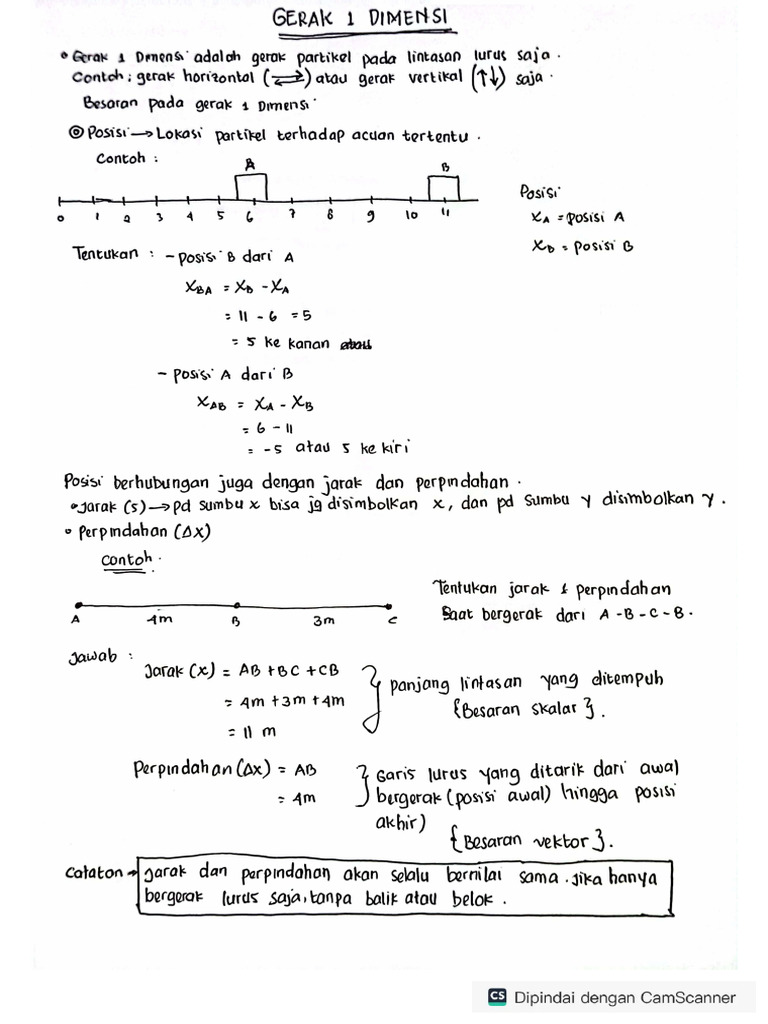 GERAK 1 DIMENSI
• Gerak 1 Dimensi adalah gerak partikel pada lintasan lurus saja.
Contoh; gerak horizontal (⇄) atau gerak vertikal (↑↓) saja.
Besaran pada gerak 1 Dimensi
◎ Posisi → Lokasi partikel terhadap acuan tertentu.
Contoh :
A B
0 1 2 3 4 5 6 7 8 9 10 11
Posisi
xA = posisi A
xB = posisi B
Tentukan : - posisi B dari A
xBA = xB - xA
= 11 - 6 = 5
= 5 ke kanan
- posisi A dari B
xAB = xA - xB
= 6 - 11
= -5 atau 5 ke kiri
Posisi berhubungan juga dengan jarak dan perpindahan.
• Jarak (s) → pd sumbu x bisa jg disimbolkan x, dan pd sumbu y disimbolkan y.
• Perpindahan (Δx)
contoh.
A 4m B 3m C
Tentukan jarak & perpindahan
Saat bergerak dari A-B-C-B.
Jawab :
Jarak (x) = AB + BC + CB
= 4m + 3m + 4m
= 11 m
} panjang lintasan yang ditempuh
{Besaran skalar}.
Perpindahan (Δx) = AB
= 4m
} Garis lurus yang ditarik dari awal
bergerak (posisi awal) hingga posisi
akhir)
{Besaran vektor}.
Cataton → Jarak dan perpindahan akan selalu bernilai sama. Jika hanya
bergerak lurus saja, tanpa balik atau belok.
CS Dipindai dengan CamScanner